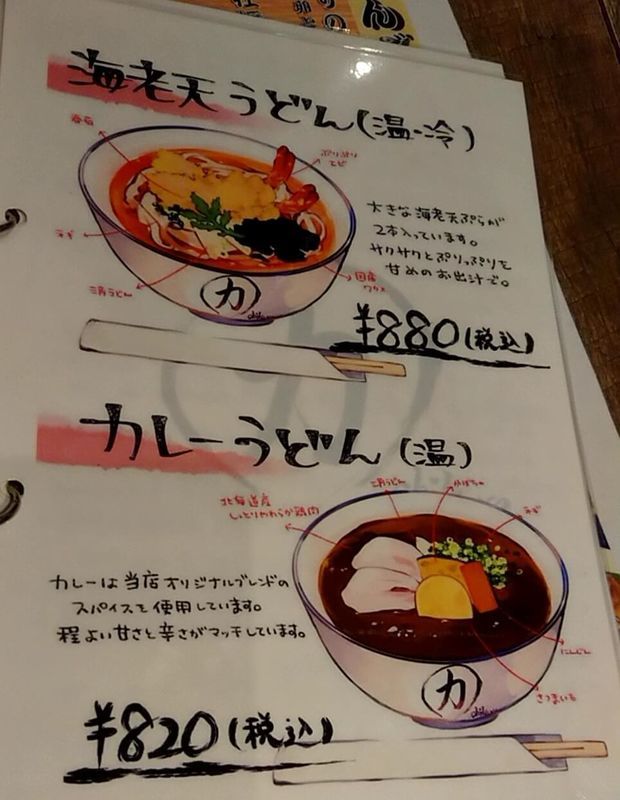 海老天うどん(温・冷)
春菊
ぷりぷり
エビ
ネギ
三角うどん
国産
ワカメ
大きな海老天ぷらが
2本入っています。
サクサクとぷりっぷりを
甘めのお出汁で。
力
¥880(税込)
カレーうどん(温)
三角うどん
かぼちゃ
ネギ
北海道産
しっとりやわらか鶏肉
カレーは当店オリジナルブレンドの
スパイスを使用しています。
程よい甘さと辛さがマッチしています。
にんじん
さつまいも
力
¥820(税込)